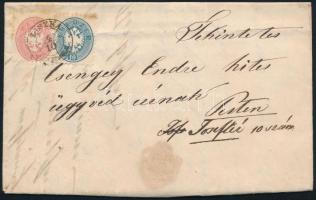 Tekintetes
Csengey Endre hites
ügyvéd úrnak
Pesten
10 szám